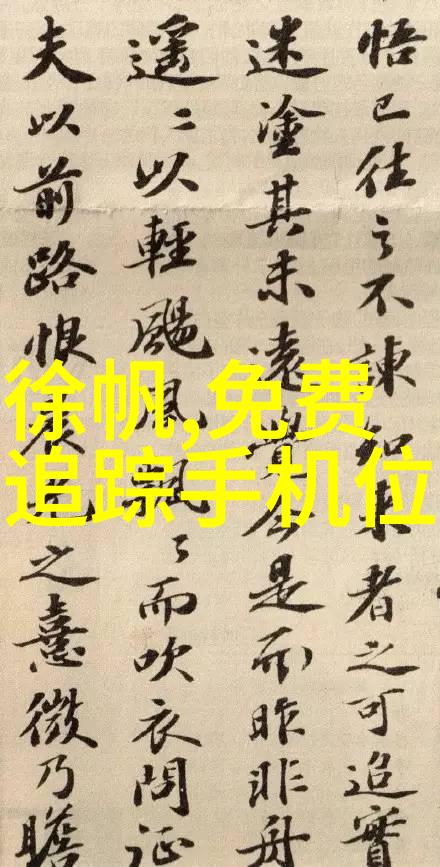 悟已往之不諫知来者之可追實
迷塗其未遠覺今是而昨非舟
遥〻以輕颺風飄〻而吹衣問征
夫以前路恨晨光之熹微乃瞻
徐帆,免费
追踪手机位